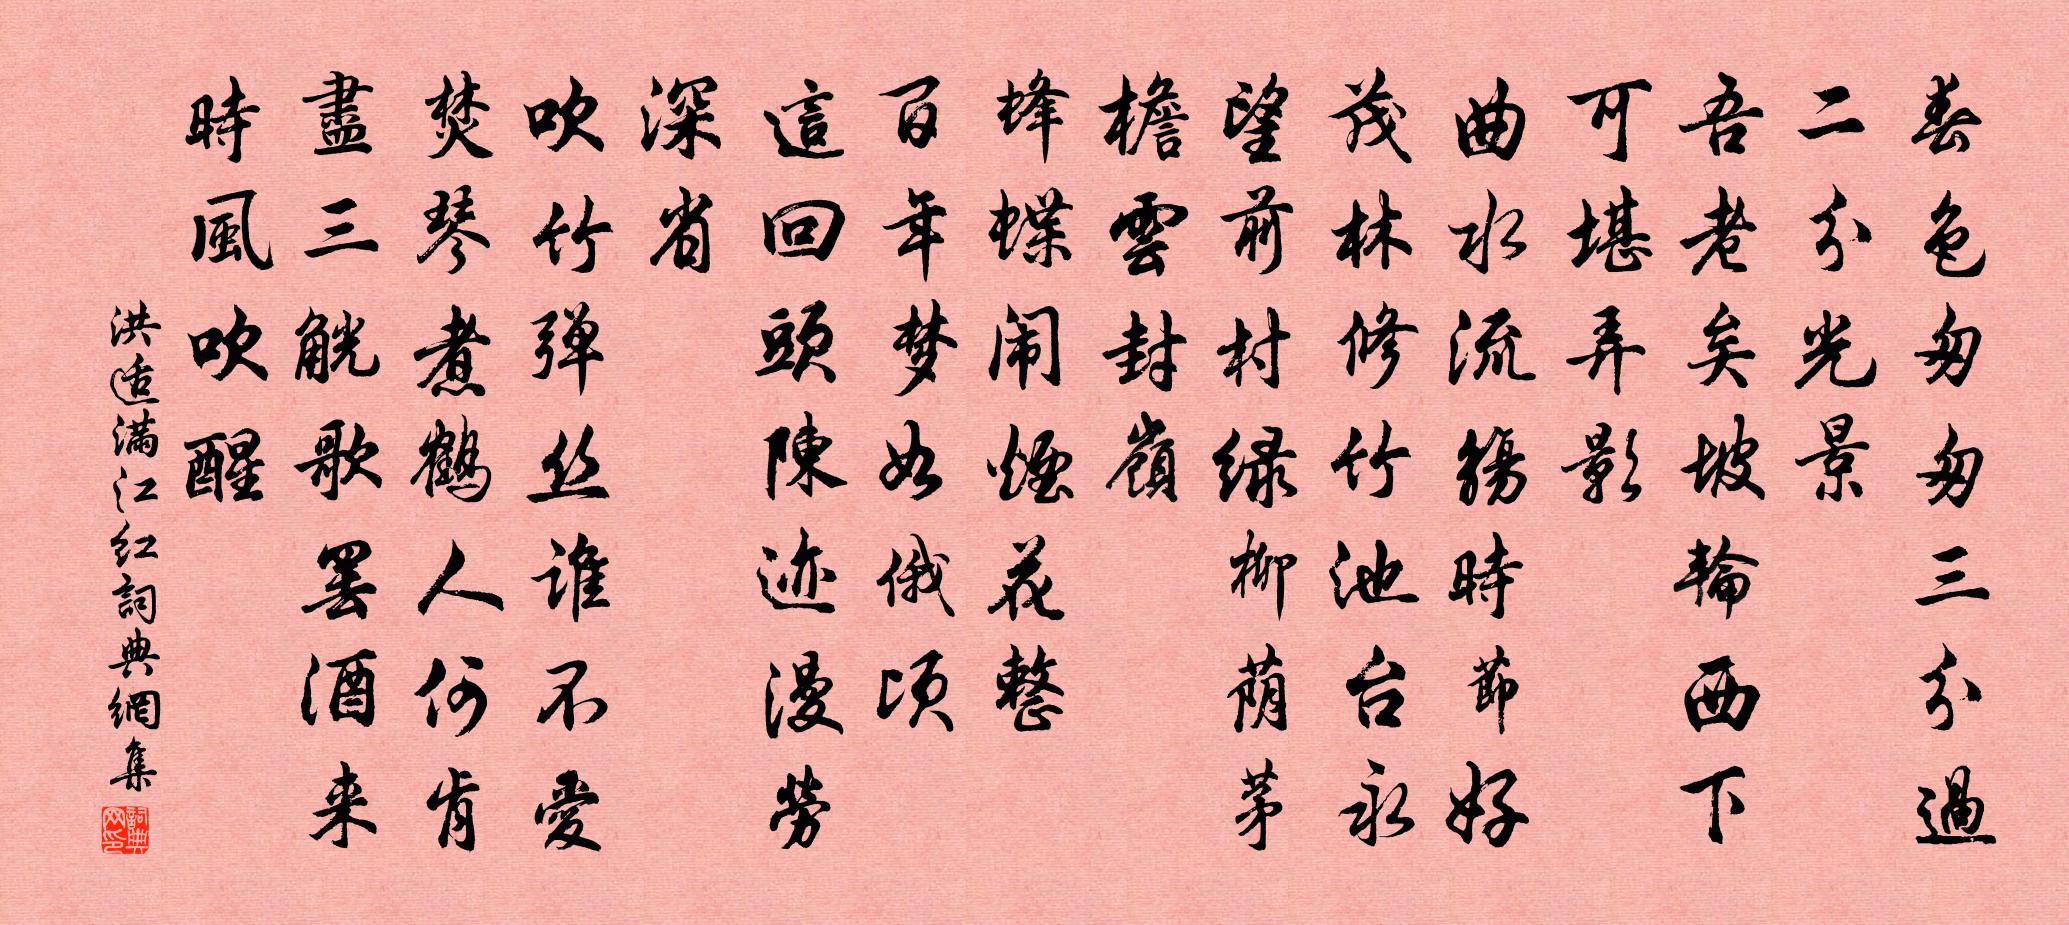 春色匆匆三分過
二分光景
吾老矣坡輪西下
可堪弄影
曲水流觴時節好
茂林修竹池台永
望前村绿柳荫茅
檐雲封嶺
蜂蝶闹煙花整
百年梦如俄顷
這回頭陳迹漫勞
深省
吹竹弹丝谁不愛
焚琴煮鶴人何肯
盡三觥歌罢酒来
時風吹醒
洪适满江红詞典網集
詞典网印